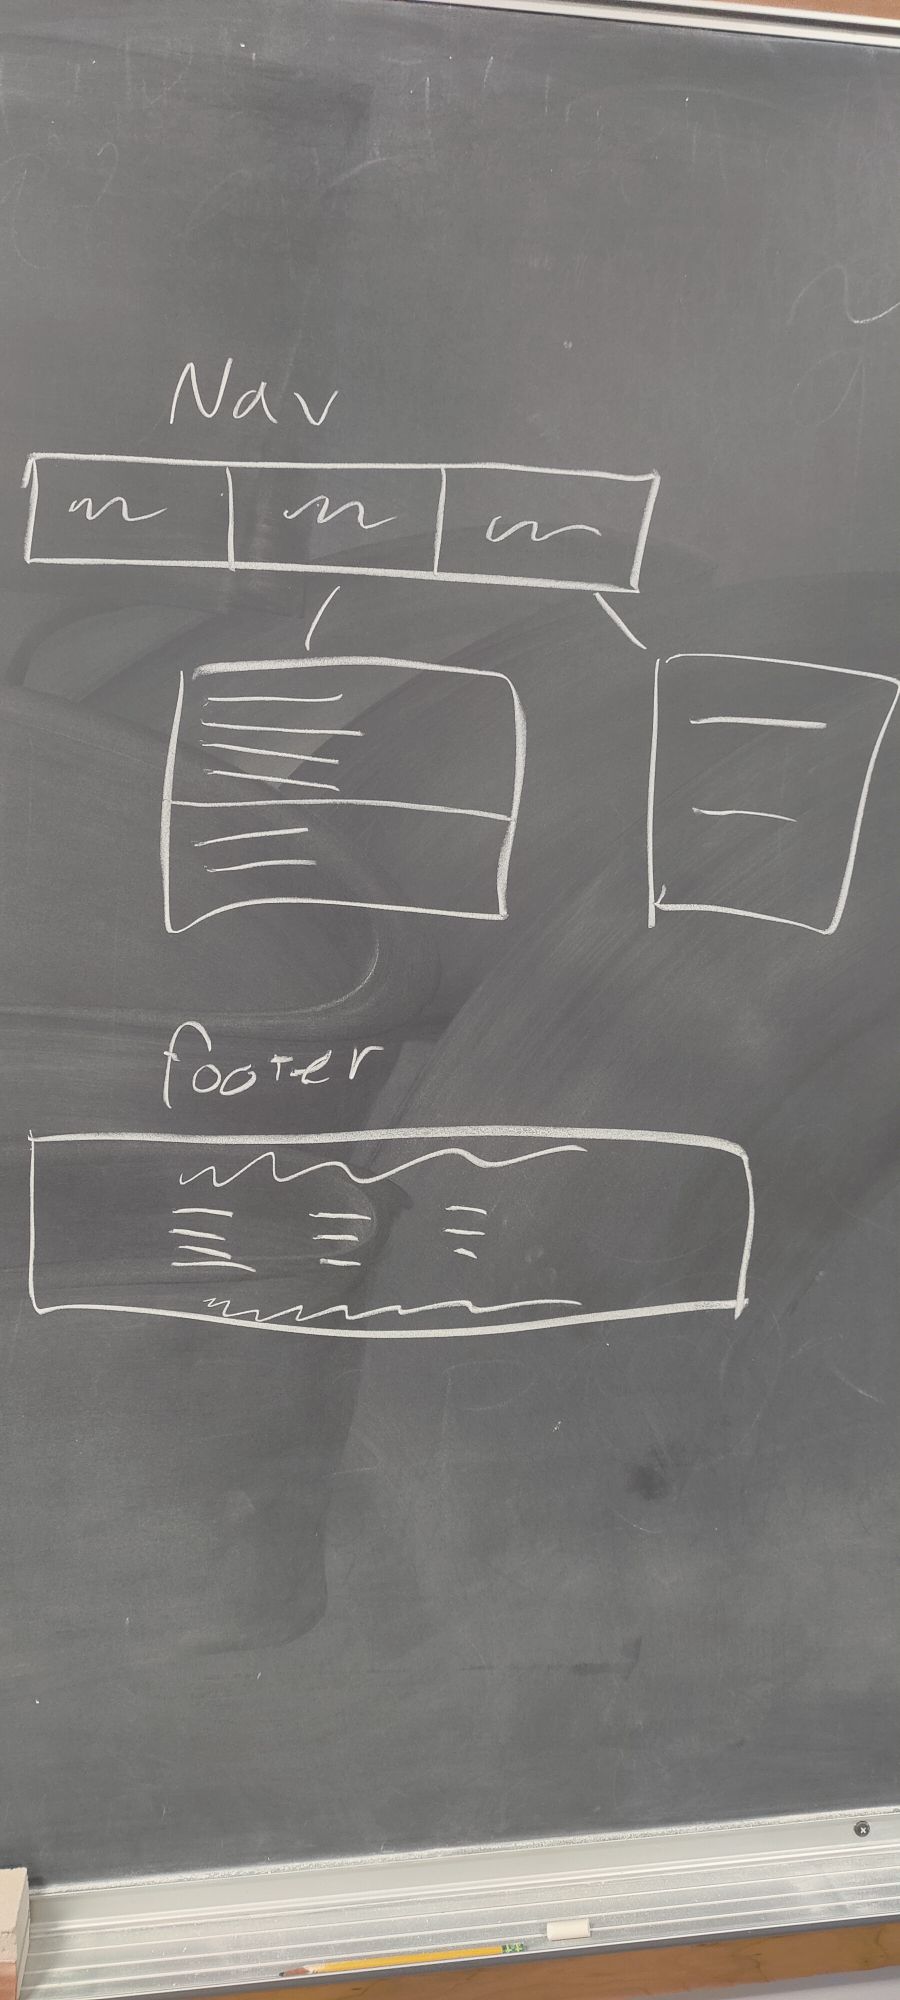 Nav
footer